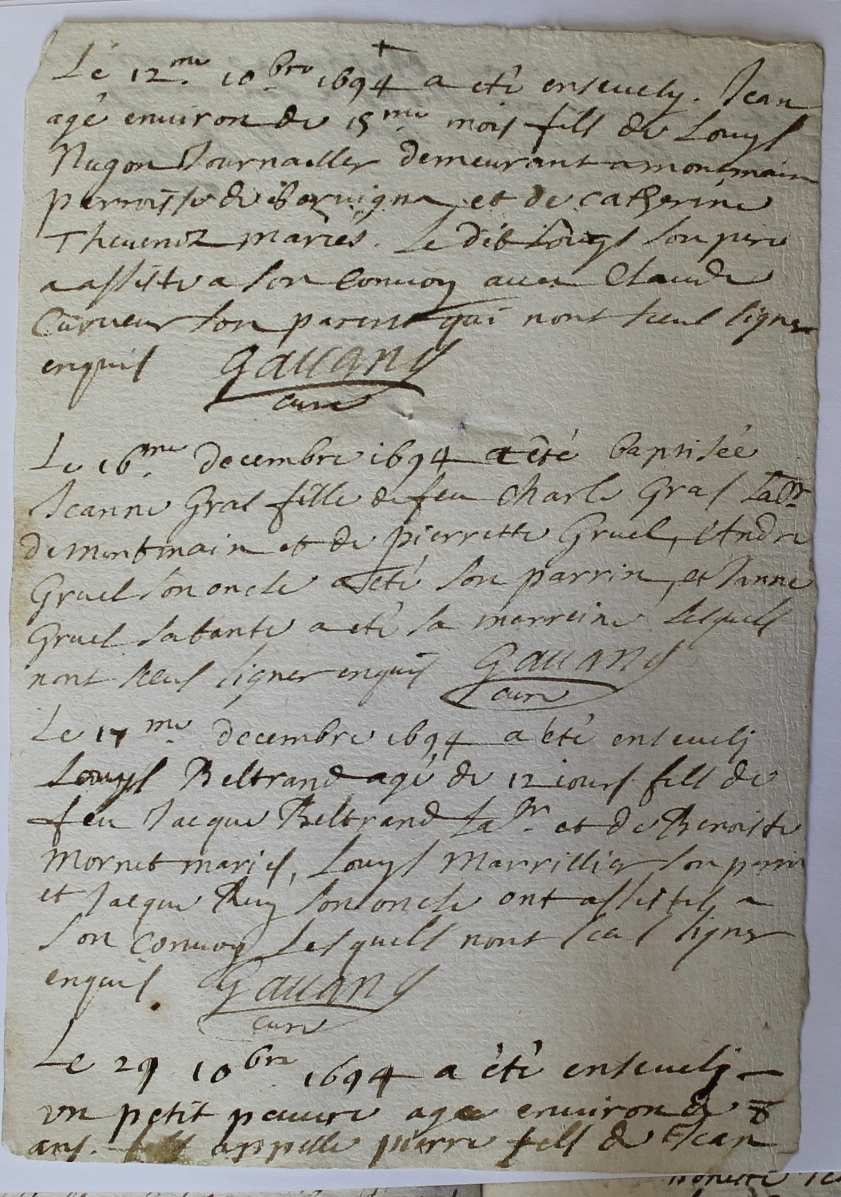 Le 12me 10bre 1694 a eté ensevely. Jean
agé environ de 15me mois fils de Louys
Nugon Journallier demeurant a montmain
parroisse de et de Catherine
Thevenot mariés. Le dit Louys son pere
a assisté a son Convoy avec Claude
Cureur son parent qui nont sceus signer
enquis Gauany
curé
Le 16me decembre 1694 a été baptisée
Jeanne Gras fille de feu Charle Gras Lagr
de montmain et de pierrette Gruel, Andre
Gruel son oncle a eté son parrin, et Janne
Gruel sa tante a eté sa marreine Lesquels
nont sceus signer enquis Gauany
curé
Le 17me decembre 1694 a eté ensevelj
Louys Beltrand agé de 12 iours fils de
feu Jacque Beltrand Lagr et de Benoiste
Mornet mariés, Louys Marrillier son parrin
et Jacque son oncle ont assistés a
son Convoy Lesquells nont sceus signer
enquis Gauany
curé
Le 29 10bre 1694 a été ensevelj
un petit pauvre agé environ de 8
ans. appelle pierre fils de Jean